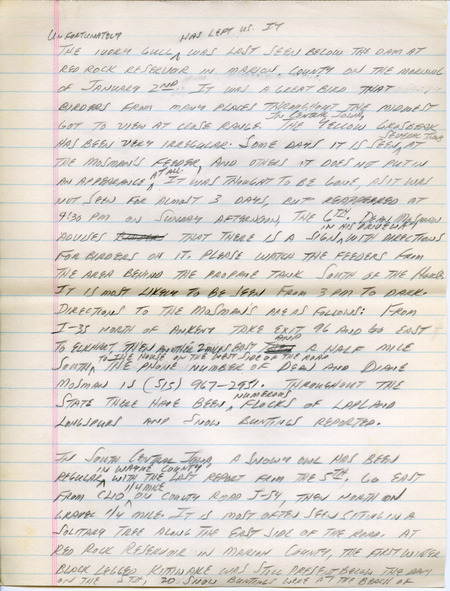 Unfortunately has left us. It
The ivory gull ^ was last seen below the dam at
Red Rock Reservoir in Marion County on the morning
of January 2nd. It was a great bird that
birders from many places throughout the midwest
in Central Iowa,
got to view at close range. The Yellow Grosbeak
several times
has been very irregular. Some days it is seen ^ at
the Mosman's feeder, and others it does not put in
at all.
an appearance ^. It was thought to be gone, as it was
not seen for almost 3 days, but reappeared at
4:30 pm on Sunday afternoon, the 6th. Dean Mosman
in his driveway
advises that there is a sign ^ with directions
for birders on it. Please watch the feeders from
the area behind the propane tank south of the house.
It is most likely to be seen from 3 pm to dark.
Directions to the Mosman's are as follows: From
I-35 north of Ankeny take exit 96 and go east
to Elkhart, then another 2 miles east and a half mile
to the house on the west side of the road
south ^. The phone number of Dean and Diane
Mosman is (515) 967-2951. Throughout the
numerous
state there have been ^ flocks of Lapland
Longspurs and Snow Buntings reported.
In South Central Iowa, a Snowy Owl has been
in Wayne County
regular ^ with the last report from the 5th. Go east
1/4 mile
from Clio ^ on County Road J-54, then north on
gravel 1/4 mile. It is most often seen sitting in a
solitary tree along the east side of the road. At
Red Rock Reservoir in Marion County, the first winter
Black legged Kittiwake was still present below the dam
on the 5th. 20 Snow Buntings were at the beach of